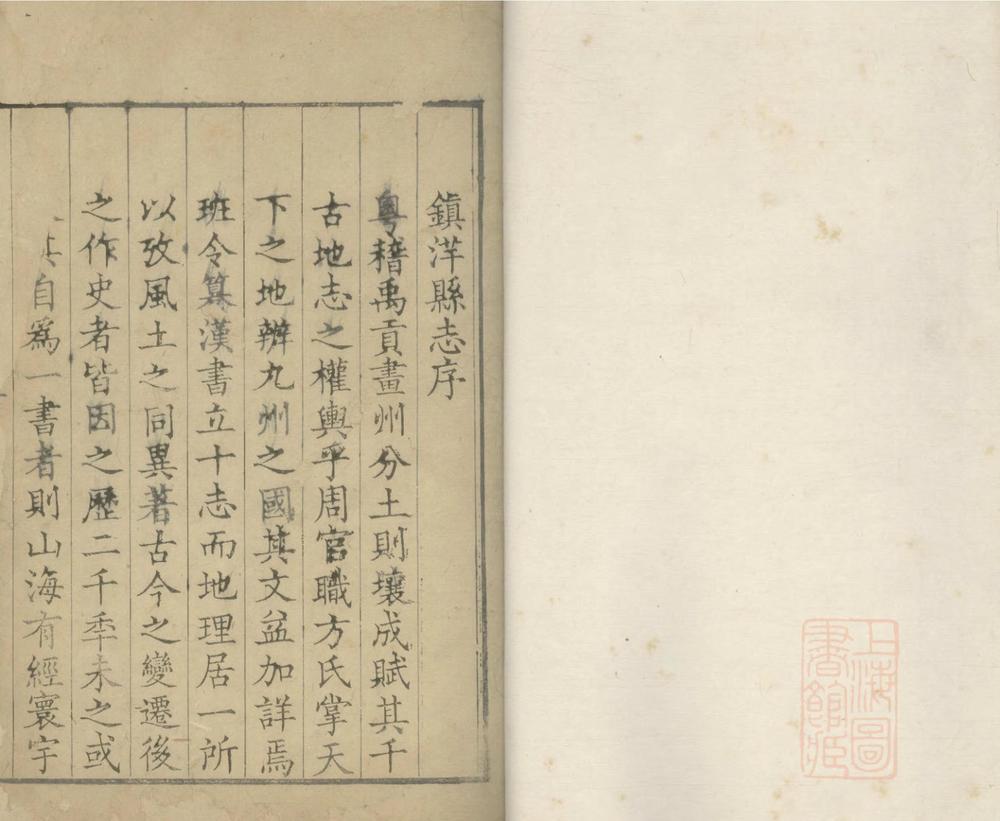 鎮洋縣志序
粤稽禹貢畫州分土則壤成賦其千
古地志之權輿乎周官職方氏掌天
下之地辨九州之國其文益加詳焉
班令纂漢書立十志而地理居一所
以攷風土之同異著古今之變遷後
之作史者皆因之歷二千秊未之或
自爲一書者則山海有經寰宇
上海圖
書館藏